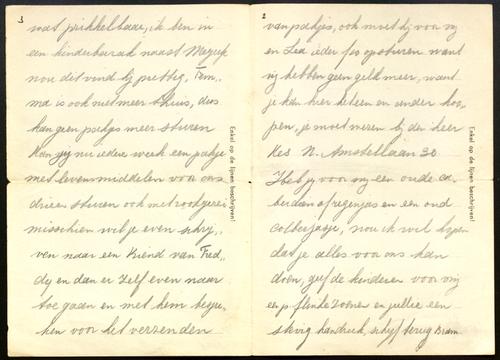 3
wat prikkelbaar, ik ben in
een kinderbarak naast Meyer
nou dit vind hij prettig, Fem,
ma is ook niet meer thuis, dus
kan geen pakjes meer sturen
Kan jij nu iedere week een pakje
met levensmiddelen voor ons
drieen sturen ook met rookgerei
misschien wil je even schrij,
ven naar een Vriend van Fred,
dy en dan er zelf even naar
toe gaan en met hem bespre,
ken voor het verzenden
Enkel op de lijnen beschrijven!
2
van pakjes, ook moet hij voor mij
en Lea ieder f10 opsturen want
wij hebben geen geld meer, want
je kan hier heteen en ander koo,
pen, je moet wezen bij den heer
Kes N. Amstellaan 30
Heb jij voor mij een oude
en een oud
colbertjasje, nou ik wil hopen
dat je alles voor ons kan
doen, geef de kinderen voor mij
een p. flinke Zoenen en jullie een
stevig handruk, schrijf terug Bram
Enkel op de lijnen beschrijven!